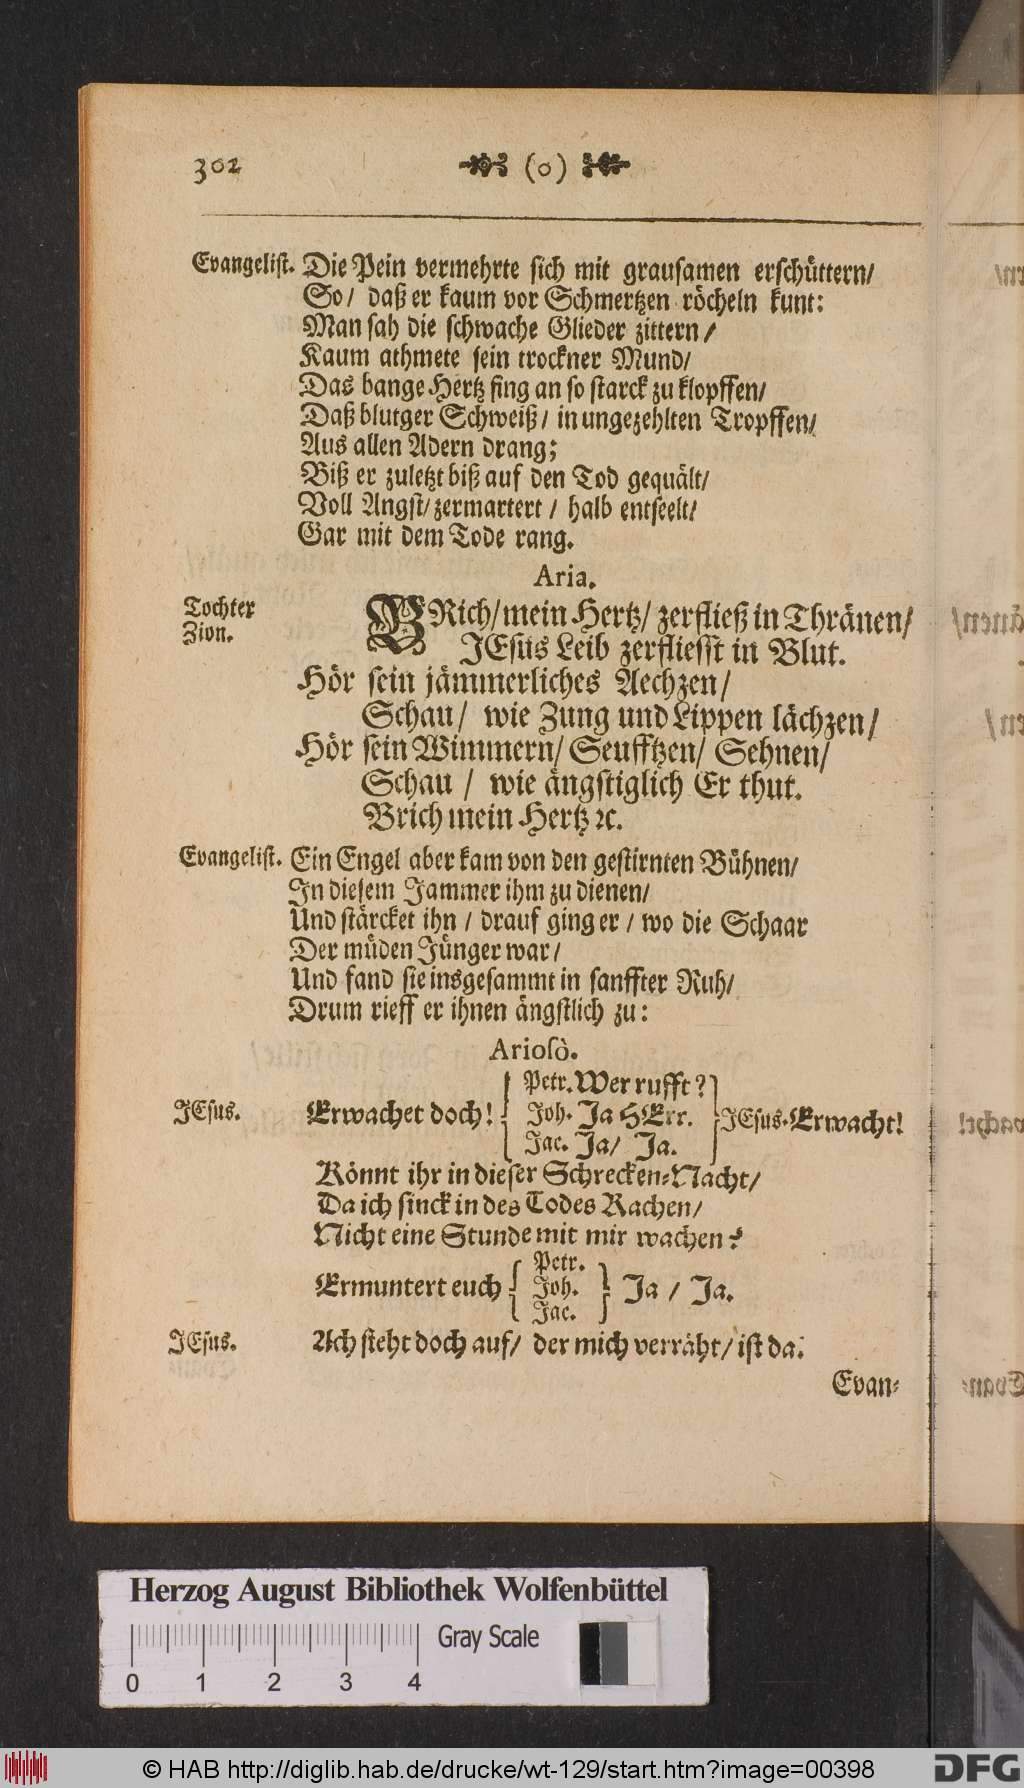 302 (o)
Evangelist. Die Pein vermehrte sich mit grausamen erschüttern/
So/ daß er kaum vor Schmertzen röcheln kunt:
Man sah die schwache Glieder zittern/
Kaum athmete sein trockner Mund/
Das bange Hertz fing an so starck zu klopffen/
Daß blutger Schweiß/ in ungezehlten Tropffen/
Aus allen Adern drang;
Biß er zuletzt biß auf den Tod gequält/
Voll Angst/ zermartert/ halb entseelt/
Gar mit dem Tode rang.
Aria.
Tochter Zion. BRich/ mein Hertz/ zerfließ in Thränen/
JEsus Leib zerfliesst in Blut.
Hör sein jämmerliches Aechzen/
Schau/ wie Zung und Lippen lächzen/
Hör sein Wimmern/ Seufftzen/ Sehnen/
Schau/ wie ängstiglich Er thut.
Brich mein Hertz ꝛc.
Evangelist. Ein Engel aber kam von den gestirnten Bühnen/
In diesem Jammer ihm zu dienen/
Und stärcket ihn/ drauf ging er/ wo die Schaar
Der müden Jünger war/
Und fand sie insgesammt in sanffter Ruh/
Drum rieff er ihnen ängstlich zu:
Ariosò.
JEsus. Erwachet doch! { Petr. Wer rufft?
Joh. Ja HErr.
Jac. Ja/ Ja. } JEsus. Erwacht!
Könnt ihr in dieser Schrecken-Nacht/
Da ich sinck in des Todes Rachen/
Nicht eine Stunde mit mir wachen?
Ermuntert euch { Petr.
Joh.
Jac. } Ja/ Ja.
JEsus. Ach steht doch auf/ der mich verräht/ ist da.
Evan-
Herzog August Bibliothek Wolfenbüttel
Gray Scale
0 1 2 3 4
© HAB http://diglib.hab.de/drucke/wt-129/start.htm?image=00398
DFG